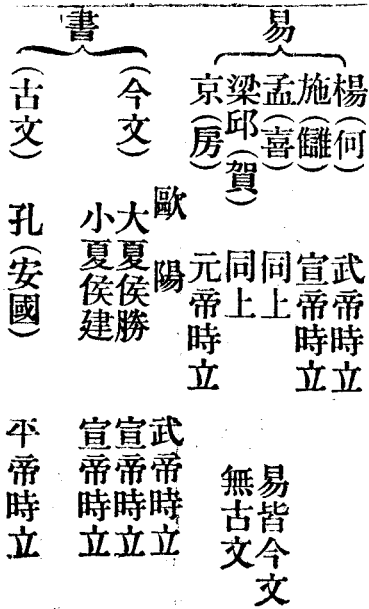 易
楊(何) 武帝時立
施(讎) 宣帝時立
孟(喜) 同上
梁邱(賀) 同上
京(房) 元帝時立
易皆今文
無古文
書
(今文)
歐陽 武帝時立
大夏侯勝 宣帝時立
小夏侯建 宣帝時立
(古文) 孔(安國) 平帝時立